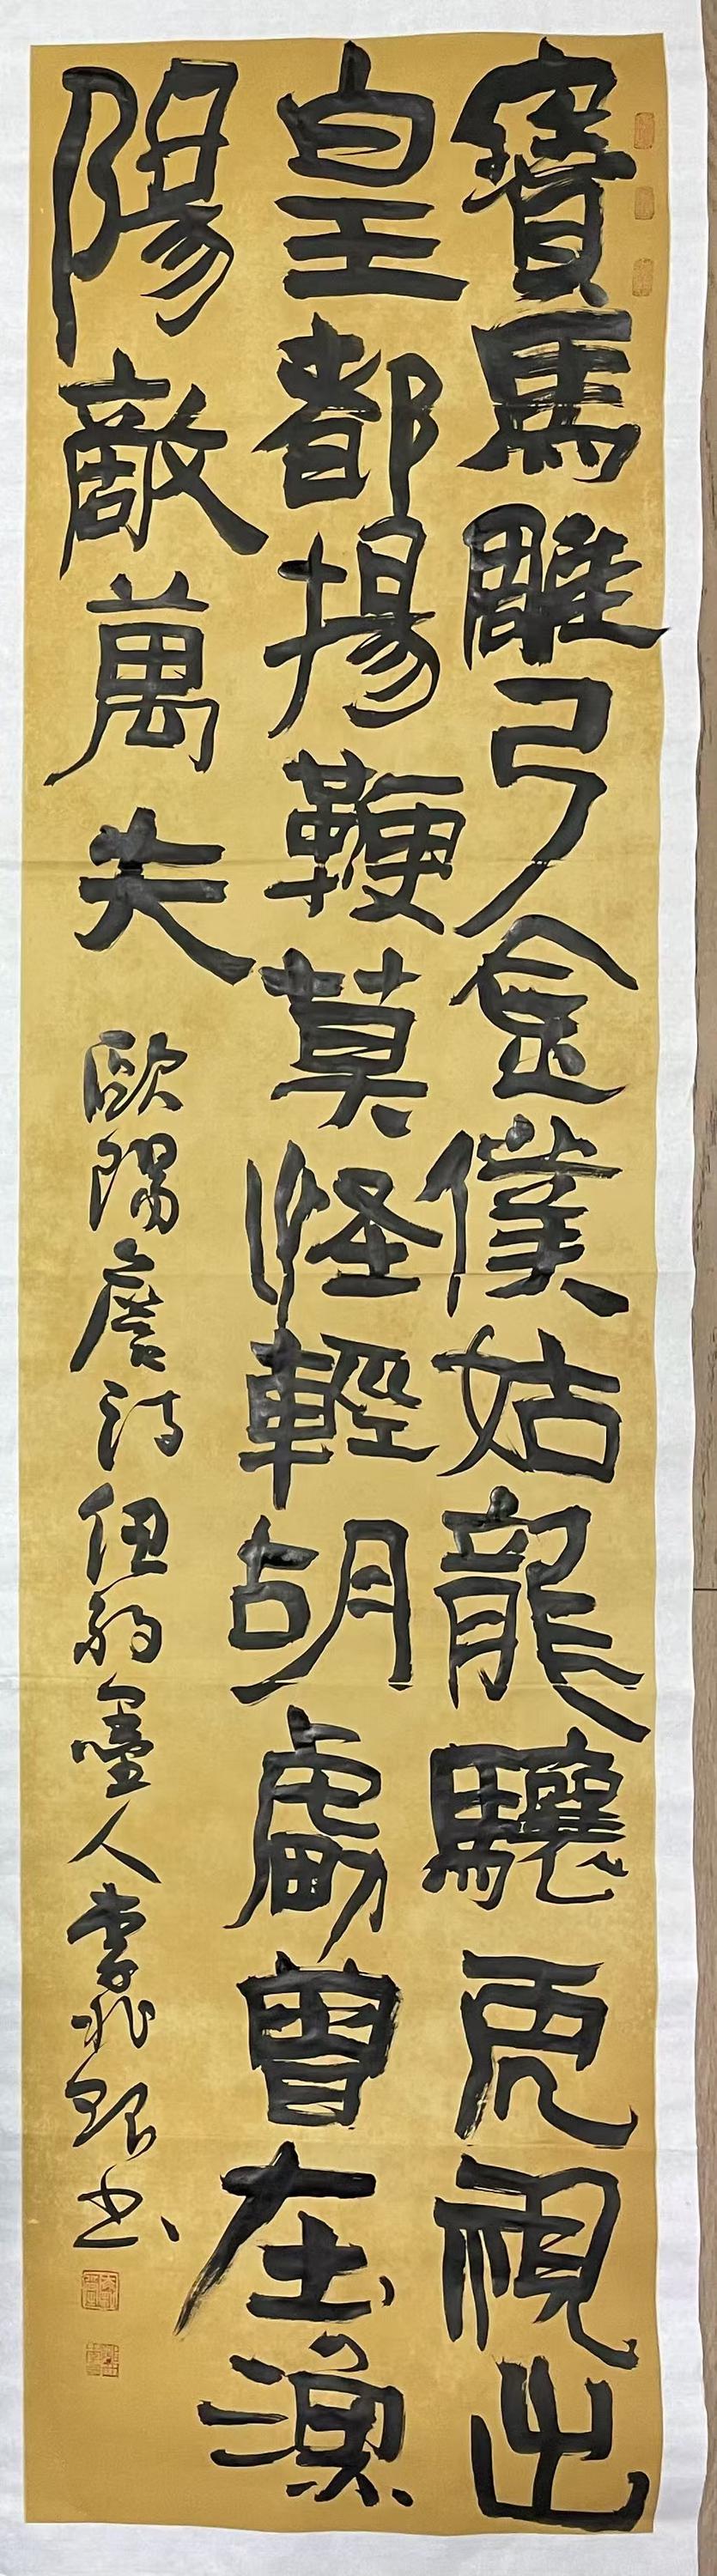 寶馬雕弓金僕姑龍驤虎視出
皇都揚鞭莫怪輕胡虜曾在漁
陽敵萬夫
歐陽詹詩 伍翁 臺人 李兆銀书